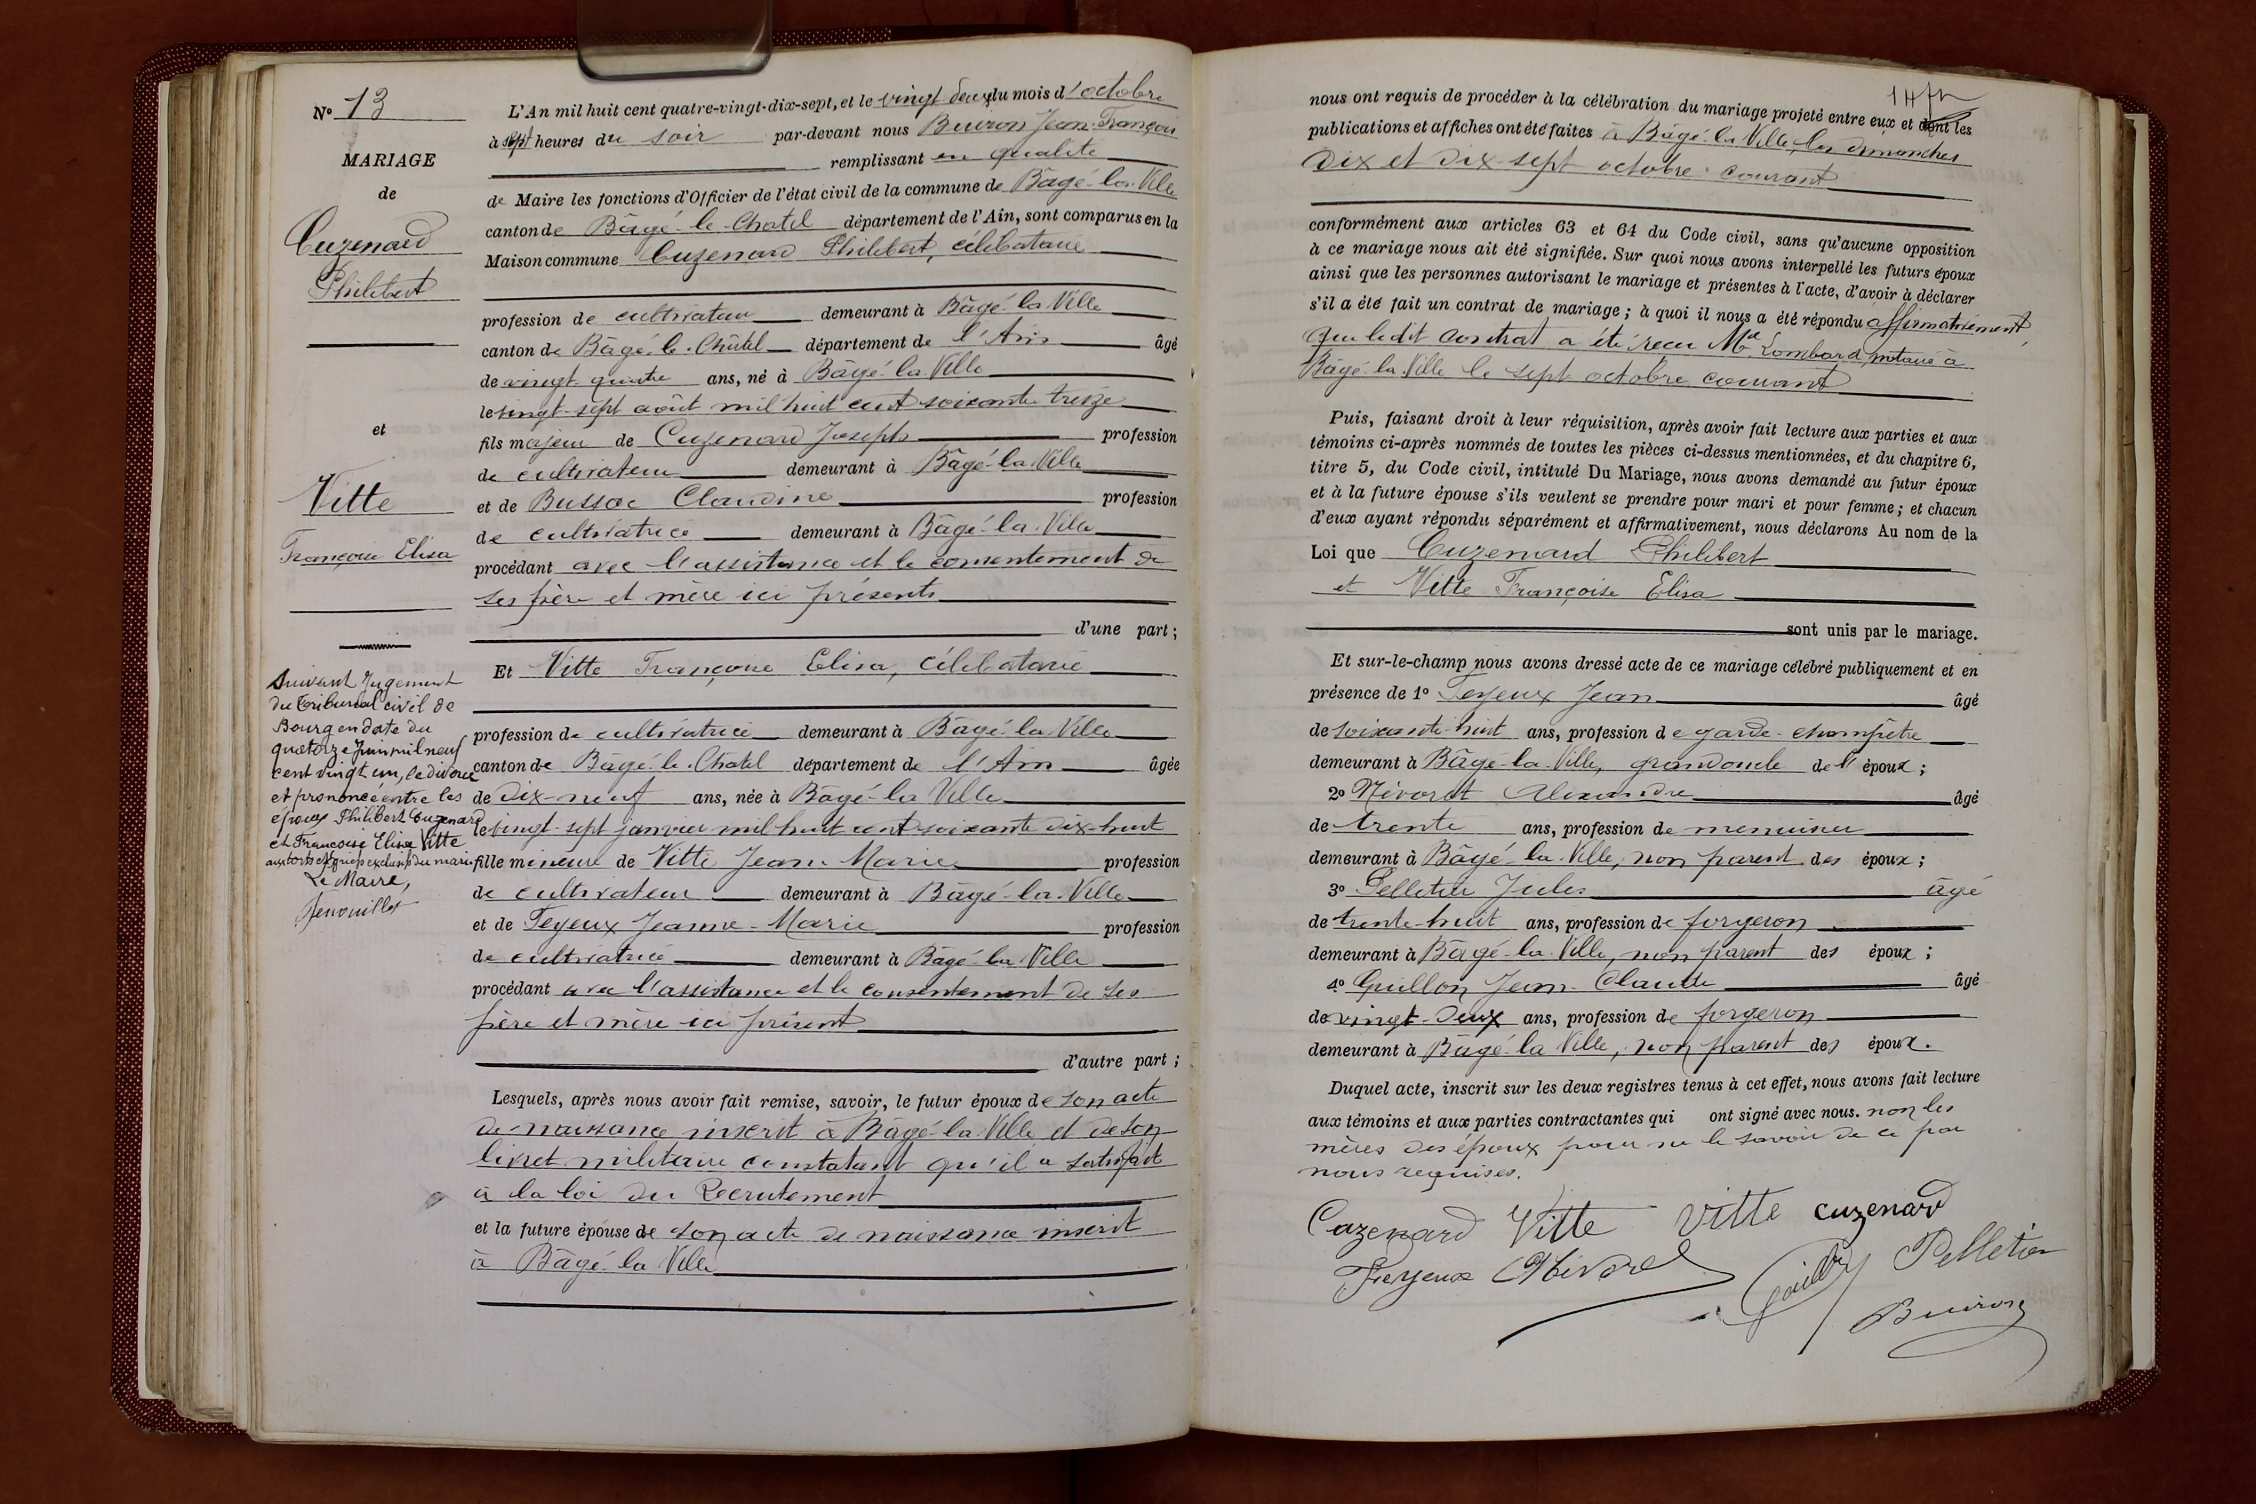 N° 13
MARIAGE
de
Cuzenard
Philibert
et
Vitte
Françoise Elisa
Suivant Jugement
du Tribunal civil de
Bourg en date du
quatorze Juin mil neuf
cent vingt un, le divorce
est prononcé entre les
époux Philibert Cuzenard
et Françoise Elisa Vitte
aux torts et griefs exclusifs du mari
Le Maire,
L'An mil huit cent quatre-vingt-dix-sept, et le vingt deux du mois d'octobre
à sept heures du soir par-devant nous Buiron Jean-François
remplissant en qualité
de Maire les fonctions d'Officier de l'état civil de la commune de Bâgé-la-Ville
canton de Bâgé-le-Chatel département de l'Ain, sont comparus en la
Maison commune Cuzenard Philibert, célibataire
profession de cultivateur demeurant à Bâgé-la-Ville
canton de Bâgé-le-Châtel département de l'Ain âgé
de vingt-quatre ans, né à Bâgé-la-Ville
le vingt-sept août mil huit cent soixante treize
fils majeur de Cuzenard Joseph profession
de cultivateur demeurant à Bâgé-la-Ville
et de Bussac Claudine profession
de cultivatrice demeurant à Bâgé-la-Ville
procédant avec l'assistance et le consentement de
ses père et mère ici présents
d'une part;
Et Vitte Françoise Elisa, célibataire
profession de cultivatrice demeurant à Bâgé-la-Ville
canton de Bâgé-le-Chatel département de l'Ain âgée
de dix-neuf ans, née à Bâgé-la-Ville
le vingt-sept janvier mil huit cent soixante dix-huit
fille mineure de Vitte Jean-Marie profession
de cultivateur demeurant à Bâgé-la-Ville
et de Feyeux Jeanne-Marie profession
de cultivatrice demeurant à Bâgé-la-Ville
procédant avec l'assistance et le consentement de ses
père et mère ici présent
d'autre part;
Lesquels, après nous avoir fait remise, savoir, le futur époux de son acte
de naissance inscrit à Bâgé-la-Ville et de son
livret militaire constatant qu'il a satisfait
à la loi du Recrutement
et la future épouse de son acte de naissance inscrit
à Bâgé-la-Ville
nous ont requis de procéder à la célébration du mariage projeté entre eux et dont les
publications et affiches ont été faites à Bâgé-la-Ville, les dimanches
dix et dix-sept octobre courant
conformément aux articles 63 et 64 du Code civil, sans qu'aucune opposition
à ce mariage nous ait été signifiée. Sur quoi nous avons interpellé les futurs époux
ainsi que les personnes autorisant le mariage et présentes à l'acte, d'avoir à déclarer
s'il a été fait un contrat de mariage; à quoi il nous a été répondu affirmativement,
que ledit contrat a été reçu Me Lombard, notaire à
Bâgé-la-Ville le sept octobre courant
Puis, faisant droit à leur réquisition, après avoir fait lecture aux parties et aux
témoins ci-après nommés de toutes les pièces ci-dessus mentionnées, et du chapitre 6,
titre 5, du Code civil, intitulé Du Mariage, nous avons demandé au futur époux
et à la future épouse s'ils veulent se prendre pour mari et pour femme; et chacun
d'eux ayant répondu séparément et affirmativement, nous déclarons Au nom de la
Loi que Cuzenard Philibert
et Vitte Françoise Elisa
sont unis par le mariage.
Et sur-le-champ nous avons dressé acte de ce mariage célébré publiquement et en
présence de 1° Feyeux Jean âgé
de soixante-huit ans, profession de garde-champêtre
demeurant à Bâgé-la-Ville, grand oncle de l'époux;
2° Nivorat Alexandre âgé
de trente ans, profession de menuisier
demeurant à Bâgé-la-Ville, non parent des époux;
3° Pelletier Jules âgé
de trente-huit ans, profession de forgeron
demeurant à Bâgé-la-Ville, non parent des époux;
4° Guillon Jean-Claude âgé
de vingt-deux ans, profession de forgeron
demeurant à Bâgé-la-Ville, non parent des époux.
Duquel acte, inscrit sur les deux registres tenus à cet effet, nous avons fait lecture
aux témoins et aux parties contractantes qui ont signé avec nous. non les
mères des époux pour ne le savoir de ce par
nous requises.
Cuzenard Vitte Vitte Cuzenard
Feyeux Pelletier
Buiron